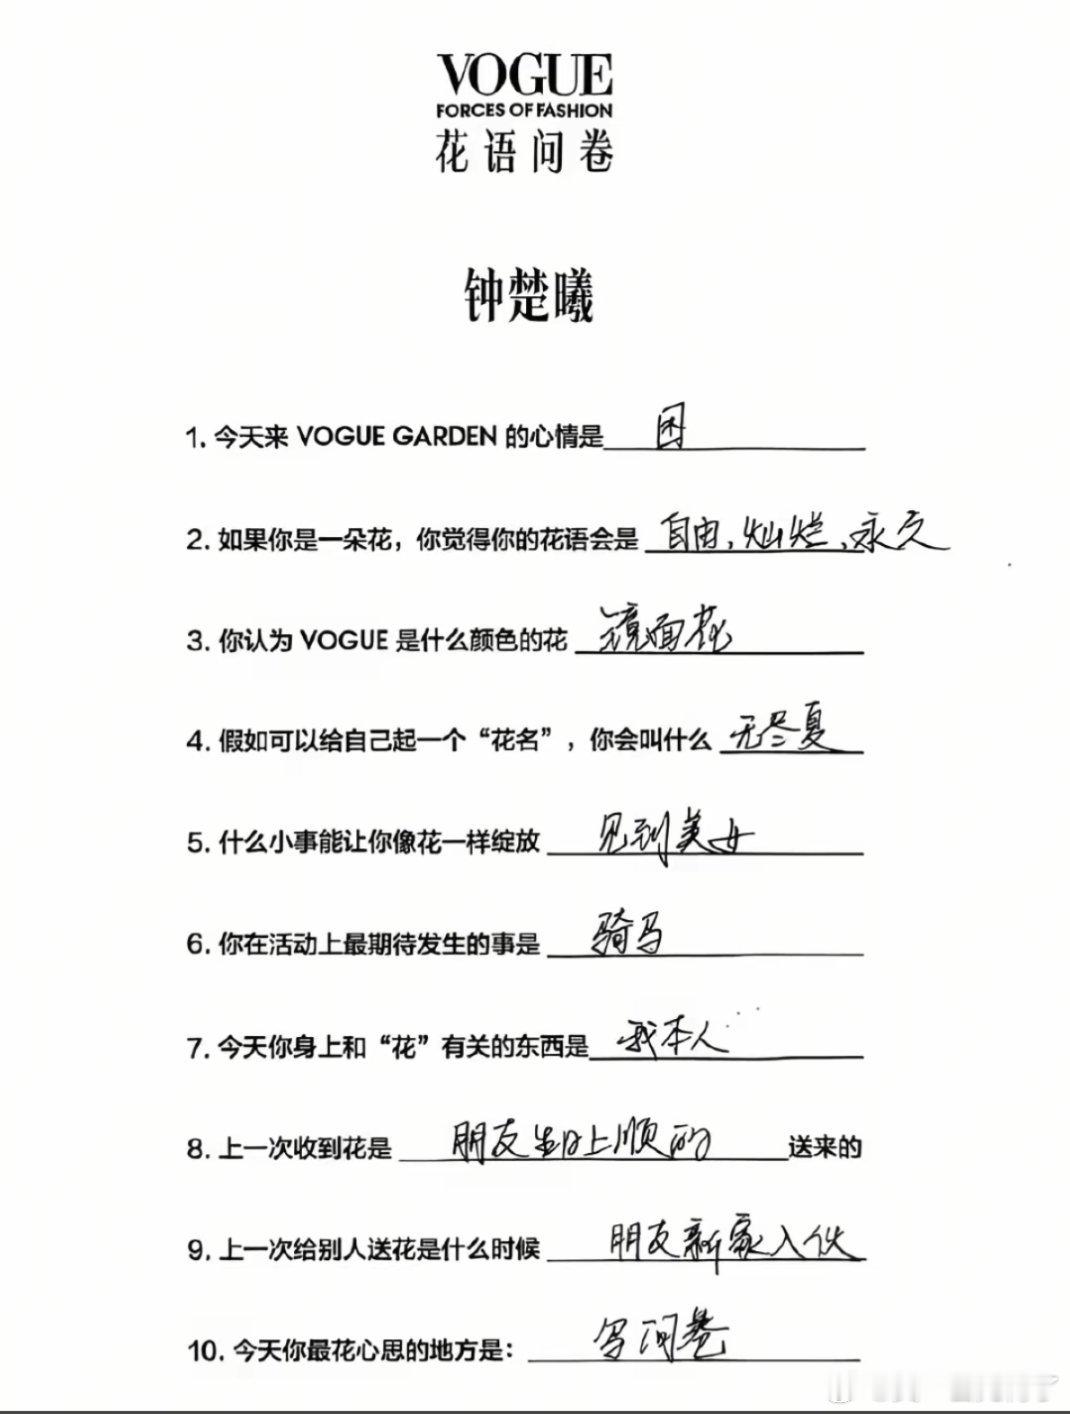 VOGUE
FORCES OF FASHION
花语问卷
钟楚曦
1. 今天来 VOGUE GARDEN 的心情是 困
2. 如果你是一朵花，你觉得你的花语会是 自由，灿烂，永久
3. 你认为 VOGUE 是什么颜色的花 镜面花
4. 假如可以给自己起一个“花名”，你会叫什么 无尽夏
5. 什么小事能让你像花一样绽放 见到美女
6. 你在活动上最期待发生的事是 骑马
7. 今天你身上和“花”有关的东西是 我本人
8. 上一次收到花是 朋友生日上顺的 送来的
9. 上一次给别人送花是什么时候 朋友新家入伙
10. 今天你最花心思的地方是： 写问卷